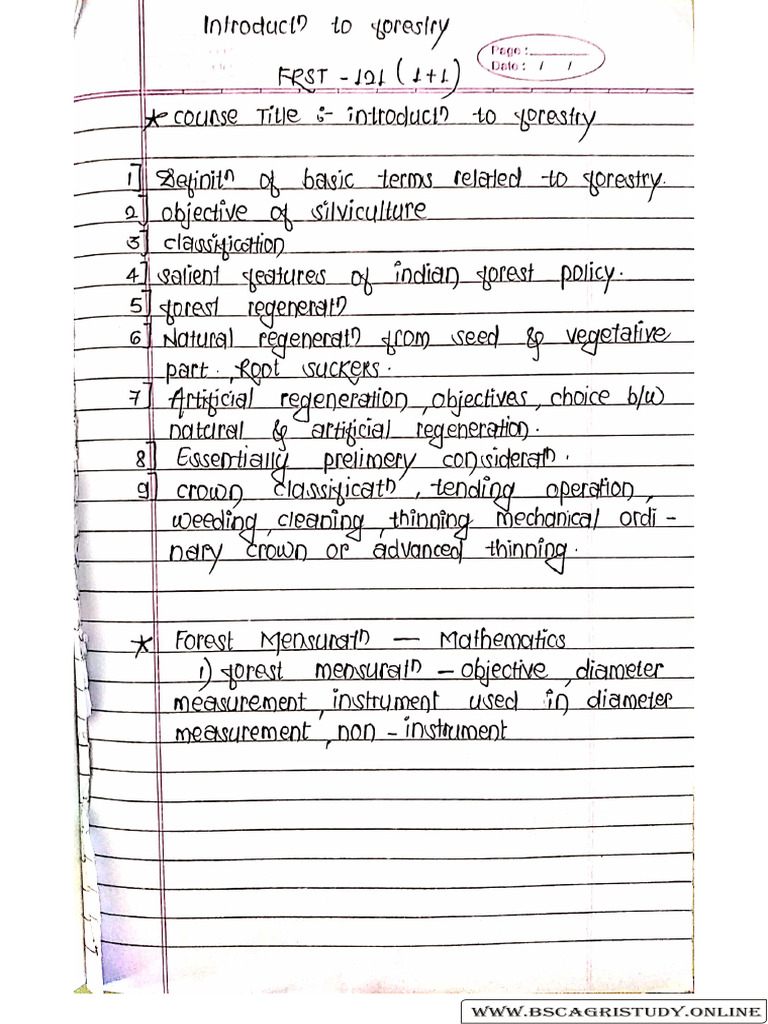 Introductn to forestry
Page :
Date : / /
FRST - 121 (1+1)
* course Title :- introductn to forestry
1] Definitn of basic terms related to forestry.
2] objective of silviculture
3] classification
4] salient features of indian forest policy.
5] forest regeneratn
6] Natural regeneratn from seed & vegetative
part., Root suckers.
7] Artificial regeneration, objectives, choice b/w
natural & artificial regeneration.
8] Essentially prelimery consideratn.
9] crown classificatn, tending operation,
weeding, cleaning, thinning mechanical ordi-
nary crown or advanced thinning.
* Forest Mensuratn — Mathematics
1) forest mensuratn - objective, diameter
measurement, instrument used in diameter
measurement, non - instrument
WWW.BSCAGRISTUDY.ONLINE